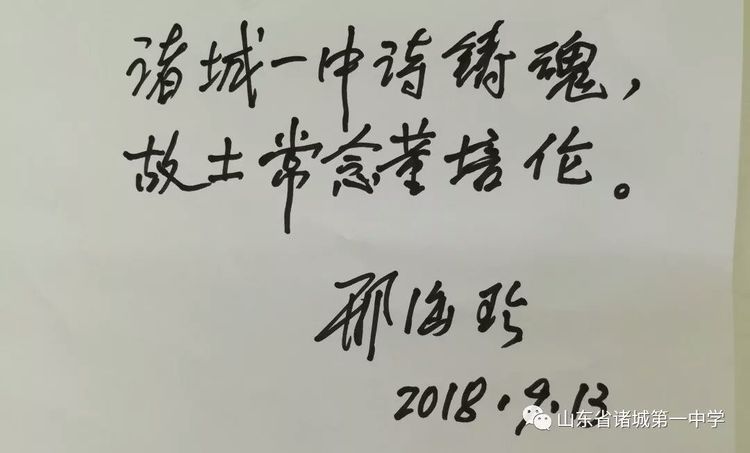 诸城一中诗铸魂，
故土常念董培伦。
邢海珍
2018.9.13
山东省诸城第一中学